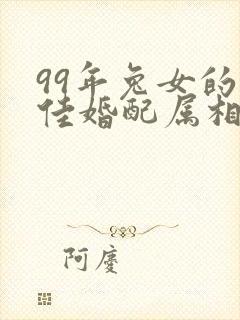 99年兔女的
佳婚配属相
阿廔